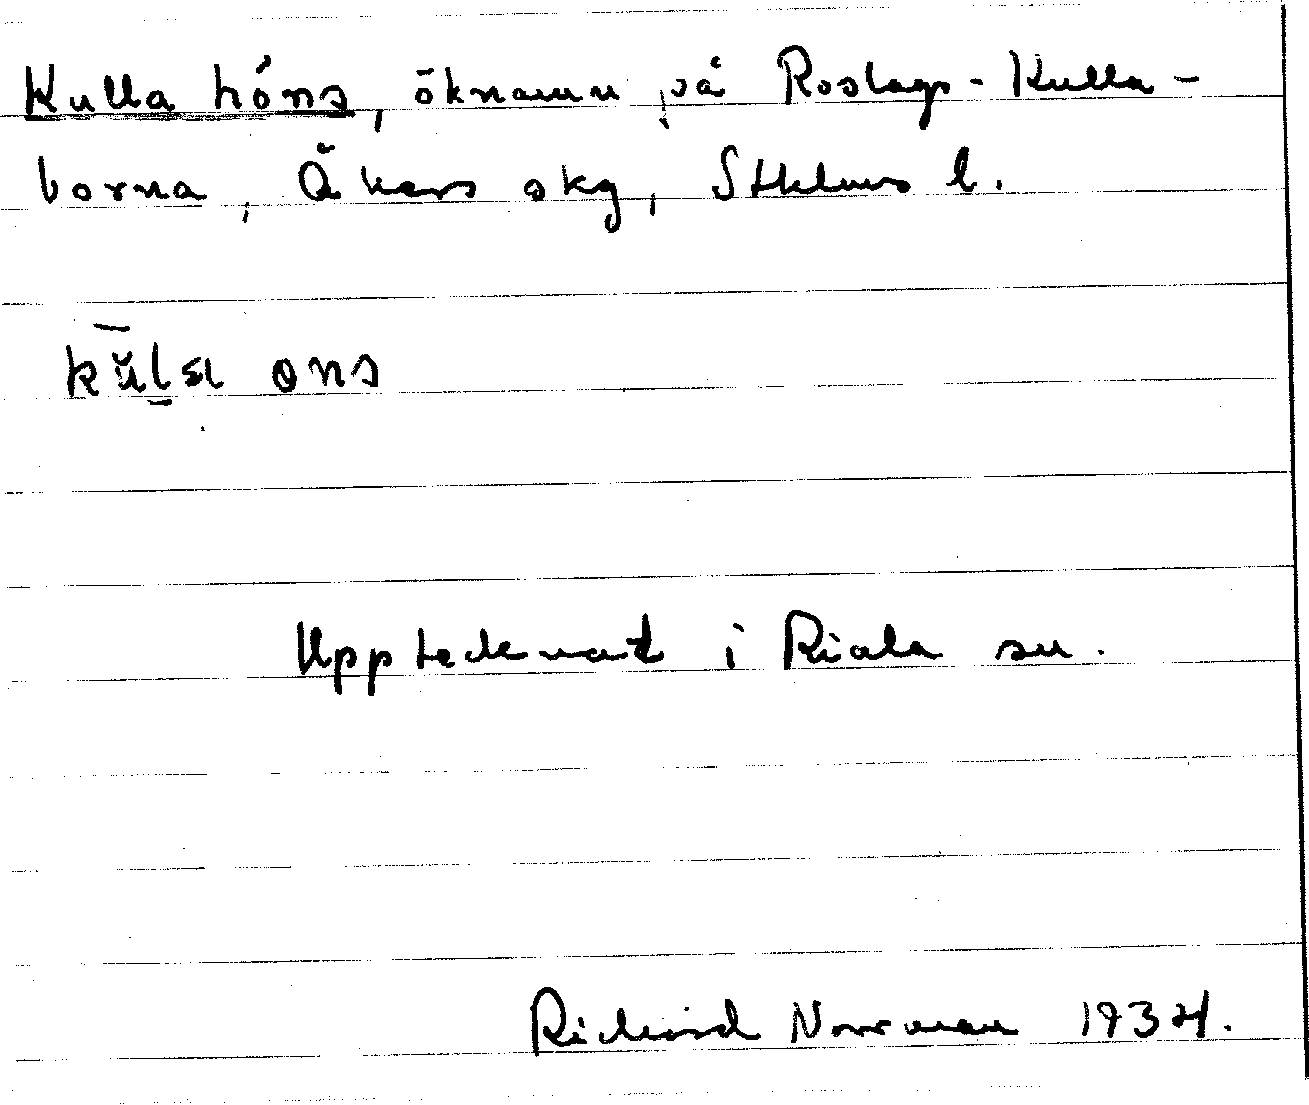 Kulla höns, öknamn på Roslags-Kulla-
borna, Åkers skg, Sthlms l.
Upptecknat i Riala sn.
Richard Norrman 1934.